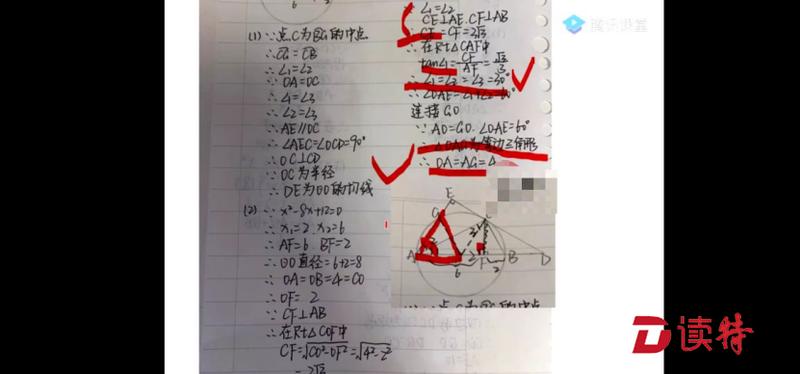 (1) ∵点C为BG的中点
∴CG=CB
∴∠1=∠2
∵OA=OC
∴∠1=∠3
∴∠2=∠3
∴AE∥OC
∴∠AEC=∠OCD=90°
∴OC⊥CD
∵OC为半径
∴DE为⊙O的切线
(2) ∵x²-8x+12=0
∴x₁=2 x₂=6
∴AF=6 BF=2
∴⊙O直径=6+2=8
∴OA=OB=4=CO
∴OF=2
∵CF⊥AB
∴在Rt△COF中
CF=√CO²-OF²=√4²-2²
=2√3
∵∠1=∠2
CE⊥AE.CF⊥AB
∴CE=CF=2√3
∴在Rt△CAF中
tan∠1=CF/AF=√3/3
∴∠1=∠2=∠3=30°
∴∠OAE=∠1+∠2=60°
连接GO
∵AO=GO.∠OAE=60°
∴△OAG为等边三角形
∴OA=AG=4
E
G
A
6
2
F
2
B
D
点C为BG的中点
腾讯课堂
读特